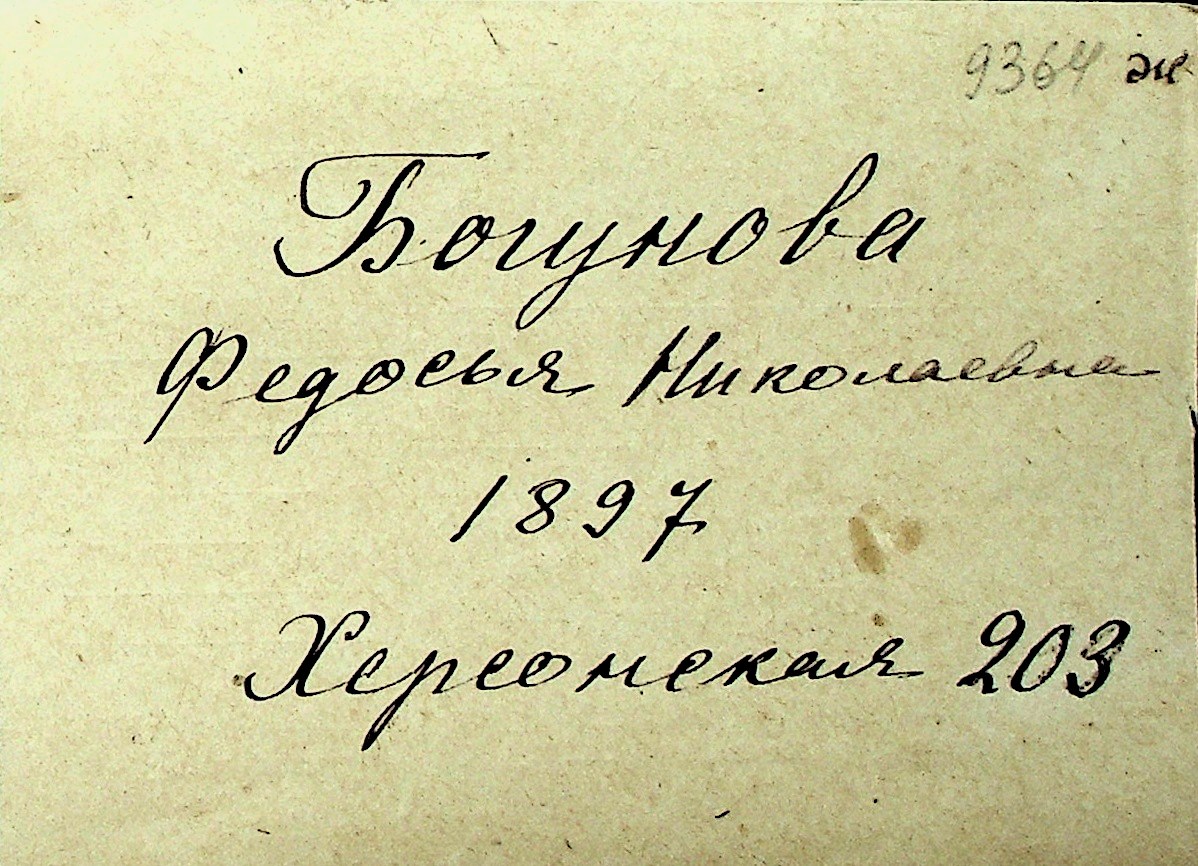 9364 ж
Богунова
Федосья Николаевна
1897
Херсонская 203